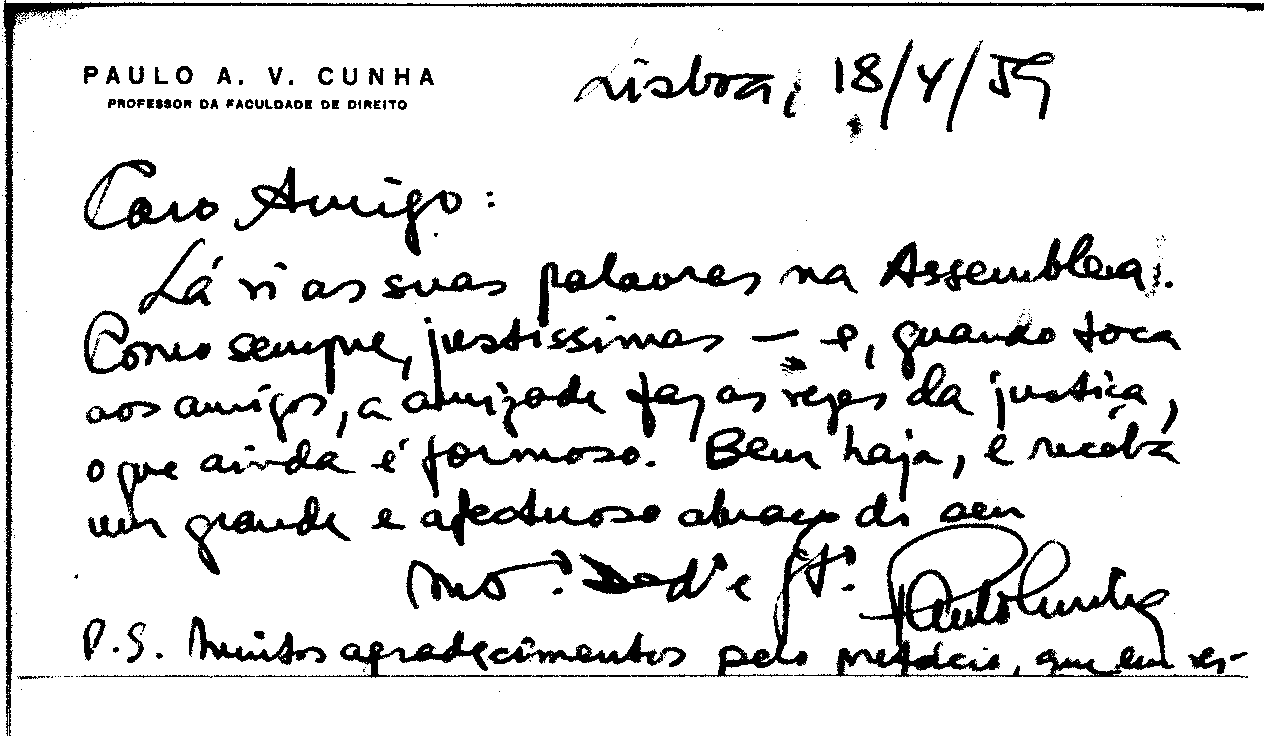 PAULO A. V. CUNHA
PROFESSOR DA FACULDADE DE DIREITO
Lisboa, 18/4/59
Caro Amigo:
Lá vi as suas palavras na Assembleia.
Como sempre, justissimas — e, quando toca
aos amigos, a amizade faz as vezes da justiça,
o que ainda é formoso. Bem haja, e receba
um grande e afectuoso abraço do seu
mto. Dedº e Gto. Paulo Cunha
P.S. Muitos agradecimentos pelo prefácio, que em res-